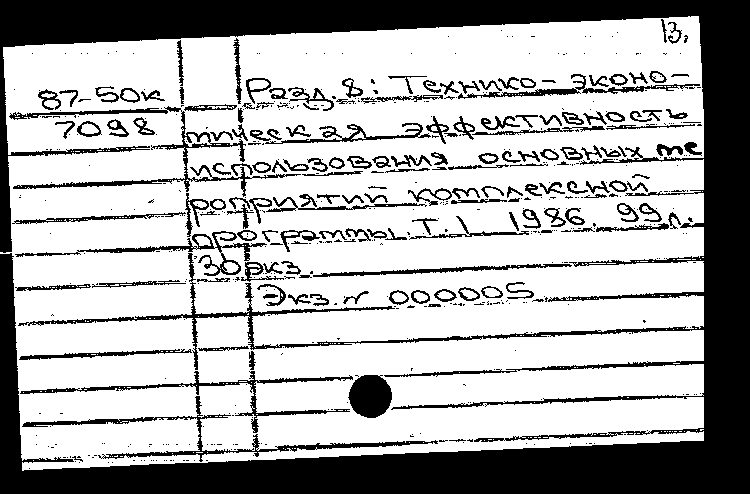 13.
87-50к Разд.8: Технико-эконо-
7098 мическая эффективность
использования основных ме
роприятий комплексной
программы. Т.1. 1986. 99л.
30экз.
Экз.n 000005